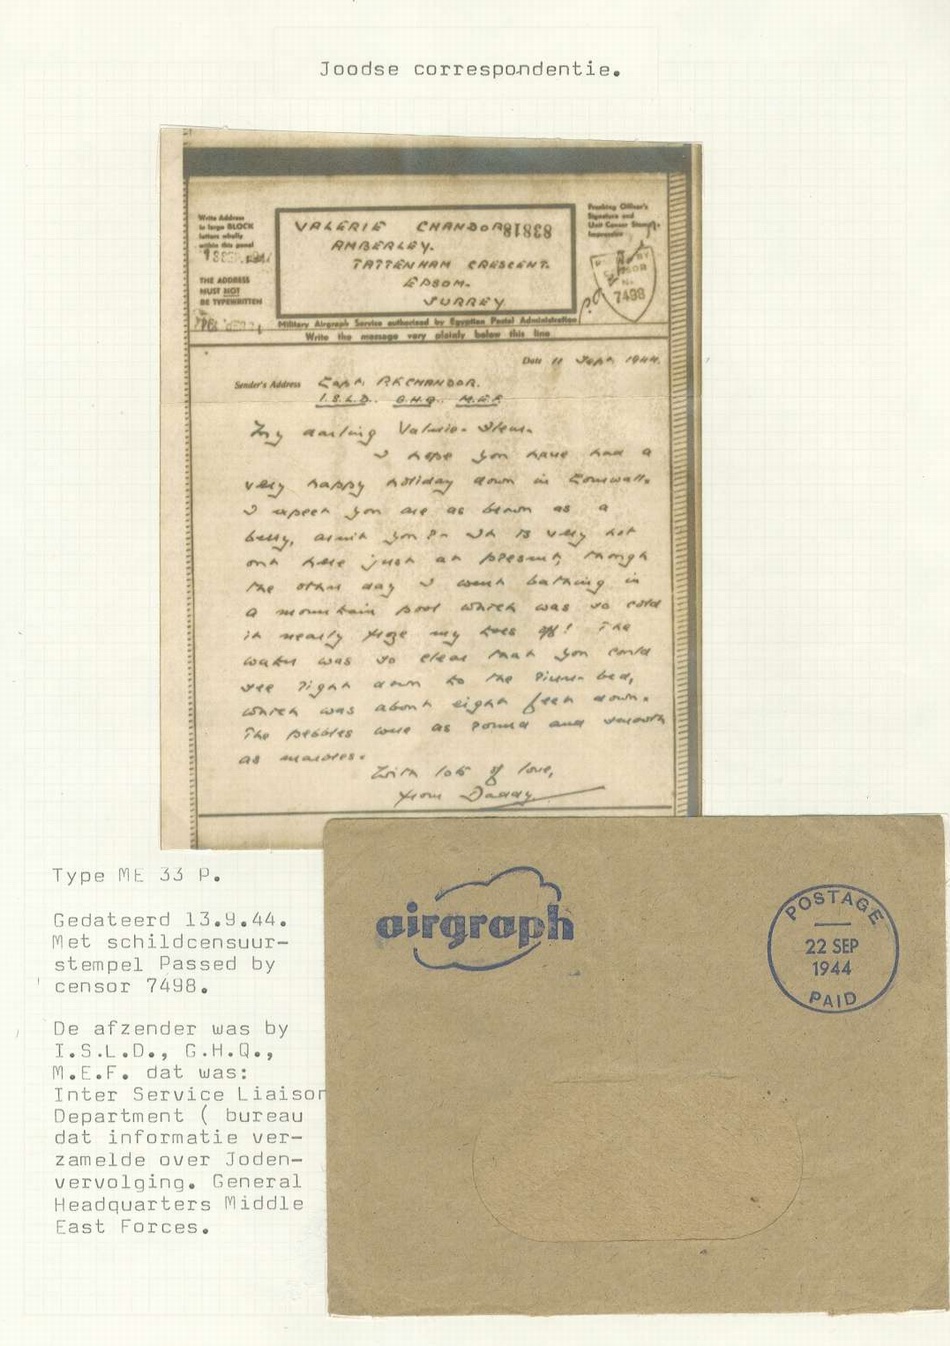 Joodse correspondentie.
Write Address
in large BLOCK
letters wholly
within this panel
THE ADDRESS
MUST NOT
BE TYPEWRITTEN
VALERIE CHANDOR
83818
AMBERLEY.
TATTENHAM CRESCENT.
EPSOM.
SURREY
Franking Officer's
Signature and
Unit Censor Stamp
Impression
PASSED BY
CENSOR
No.
7498
Military Airgraph Service authorised by Egyptian Postal Administration
Write the message very plainly below this line
Date 11 Sept. 1944.
Sender's Address Capt. R.K CHANDOR.
I.S.L.D. G.H.Q. M.E.F
My darling Valerie-
I hope you have had a
very happy holiday down in Cornwall.
I expect you are as brown as a
berry, arn't you? It is very hot
out here just at present, though
the other day I went bathing in
a mountain pool which was so cold
it nearly froze my toes off! The
water was so clear that you could
see right down to the bed,
which was about eight feet down.
The pebbles were as round and smooth
as marbles.
With lots of love,
from Daddy
Type ME 33 P.
Gedateerd 13.9.44.
Met schildcensuur-
stempel Passed by
censor 7498.
De afzender was by
I.S.L.D., G.H.Q.,
M.E.F. dat was:
Inter Service Liaison
Department ( bureau
dat informatie ver-
zamelde over Joden-
vervolging. General
Headquarters Middle
East Forces.
airgraph
POSTAGE
22 SEP
1944
PAID